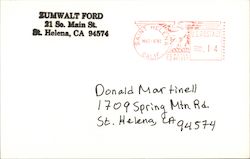 ZUMWALT FORD
21 So. Main St.
St. Helena, CA 94574
SAINT HELENA
CALIF.
Donald Martinell
1709 Spring Mtn Rd.
St. Helena, CA
94574